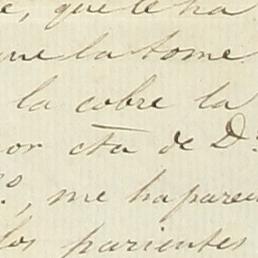 e, que le ha
ue la tome
la cobre la
or cta de D.
º, me haparec
los parientes